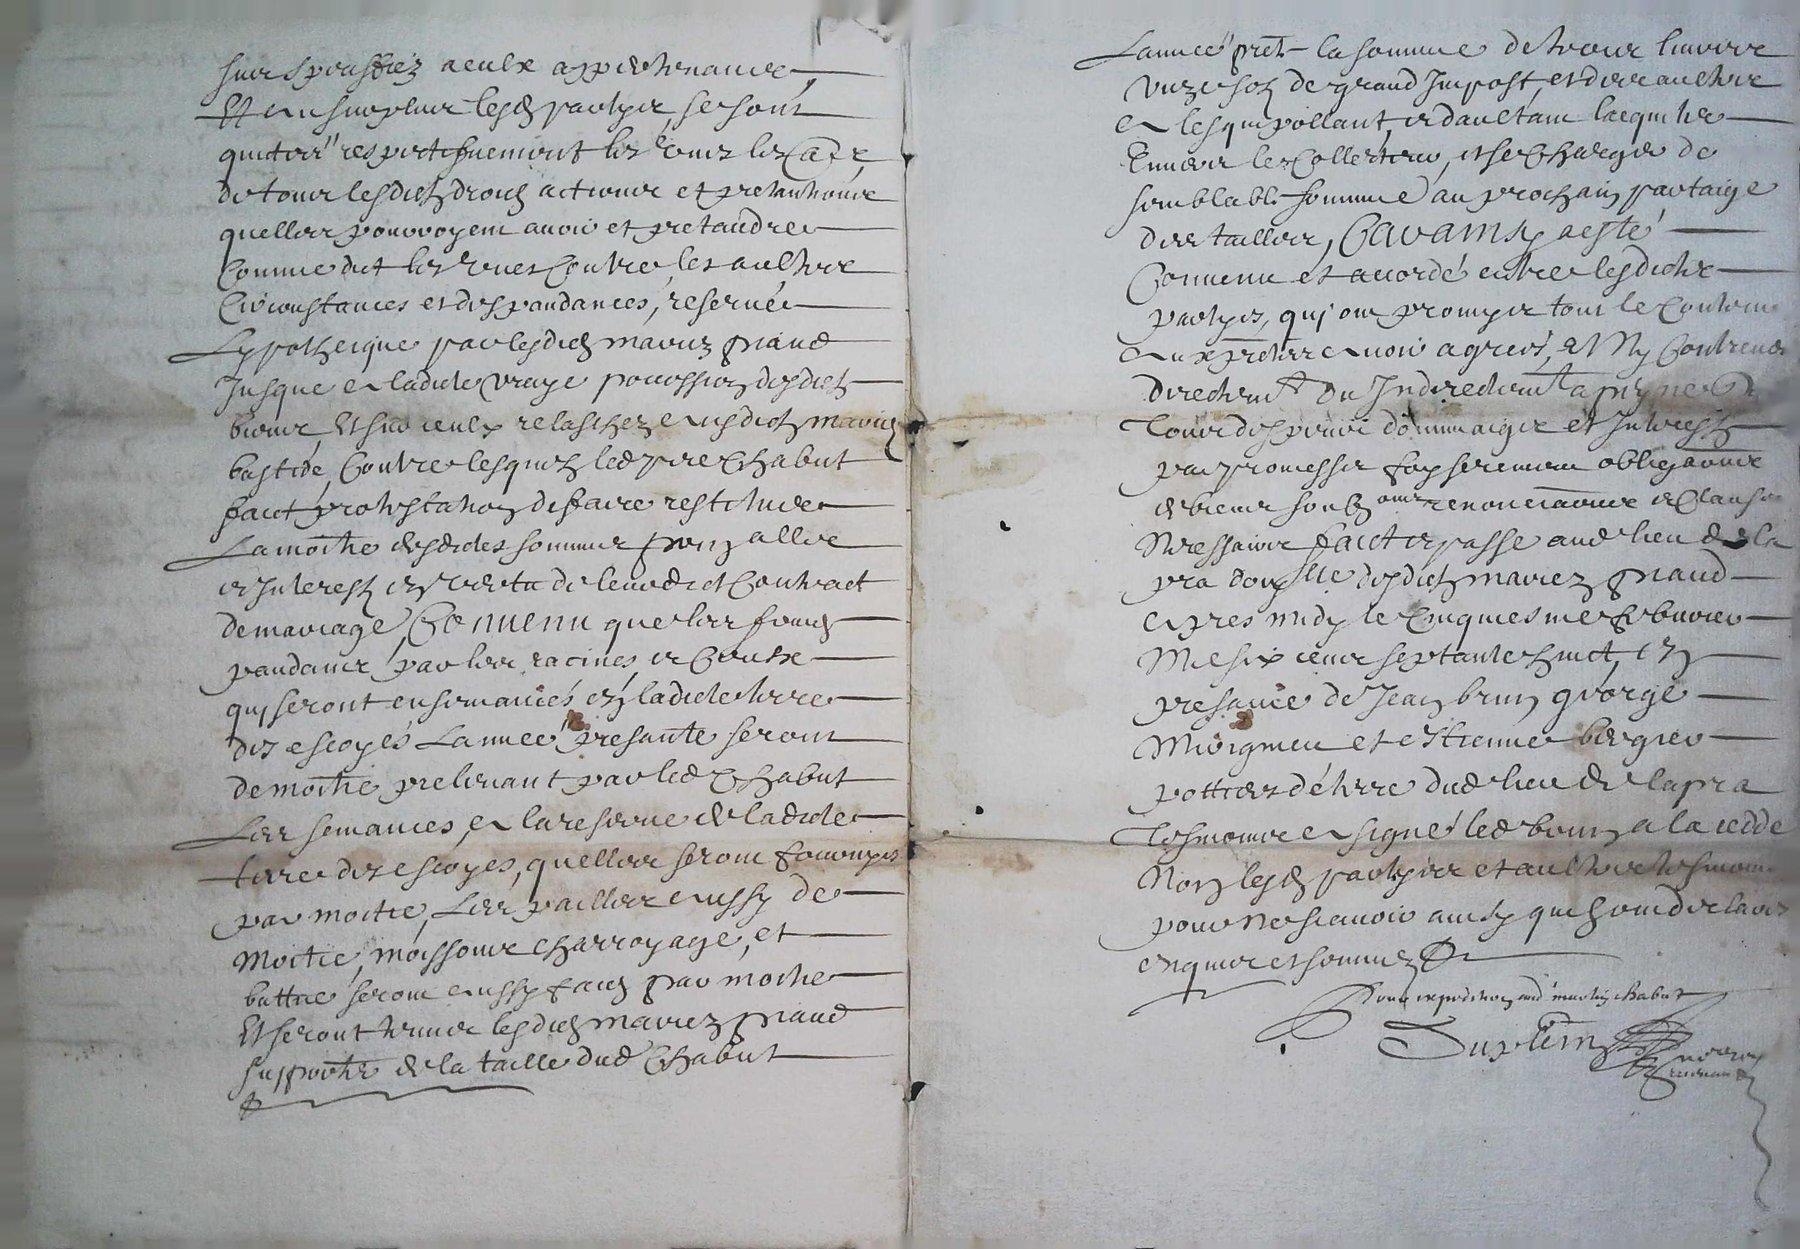 sur speciffiez a eulx appertenance
Et au surplus lesd parties se sont
quitté respectifvement les unes les aultres
de tous lesdictz droictz actions et pretantions
quelles pourroyent avoir et pretandre
comme dict les unes contre les aultres
circonstances et despandances, reservé
Lypotheique par lesdictz mariez piaud
jusque a ladicte vraye possession desdictz
biens, Et sur ceulx relaschez ausdictz mariez
bastide, contre lesquelz led pre Chabut
faict protestation de faire restituer
La moitie desdictes sommes
et Interestz en vertu de leurdict contract
de mariage, Convenu que les fruictz
pandants par les racines et
qui seront ensemancés en ladicte terre
des escoyés Lannée presante seront
de moitie prelevant par led Chabut
Les semances, a la reserve de ladicte
terre des escoyes, quelles seront
par moitie, Les pailles aussy de
Moitie, moissons charroyage, et
battre seront aussy faictz par moitie
Et seront tenus lesdictz mariez piaud
supporter de la taille dud Chabut
Lannée pnt la somme de trois livres
unze solz de grand Impost, et des aultres
a lesquipollant, et daultant lacquiter
Envers les Collecteurs, et se charger de
semblable somme au prochain partaige
des tailles, Et ainsy a esté
Convenu et accordé entre lesdictes
parties, qui ont promis tout le contenu
avoir agreé, et Ny contrevenir
directemt ou Indirectemt a peyne de
Tous despens dommaiges et Interestz
par promesses foy serement obligaons
de biens soubzons renonciaons et clauses
Necessaires faict et passé aud lieu de la
pra dans lesdictz mariez piaud
apres midy le cinquiesme febvrier
Mil six cens septante huict, en
presance de Jean brun george
Mirigneu et estienne bergier
pottiers de terre dud lieu de la pra
Tesmoins a signé led brun a la cedde
Non lesd parties et aultres tesmoins
pour ne scavoir ainsy quilz ont declaré
enquis et sommez
Pour expedition aud martin chabut
Duplein